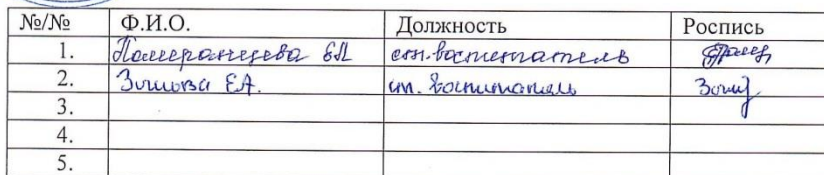 №/№ Ф.И.О. Должность Роспись
1. Померанцева ЕЛ ст. воспитатель
2. ЕА. ст. воспитатель
3.
4.
5.